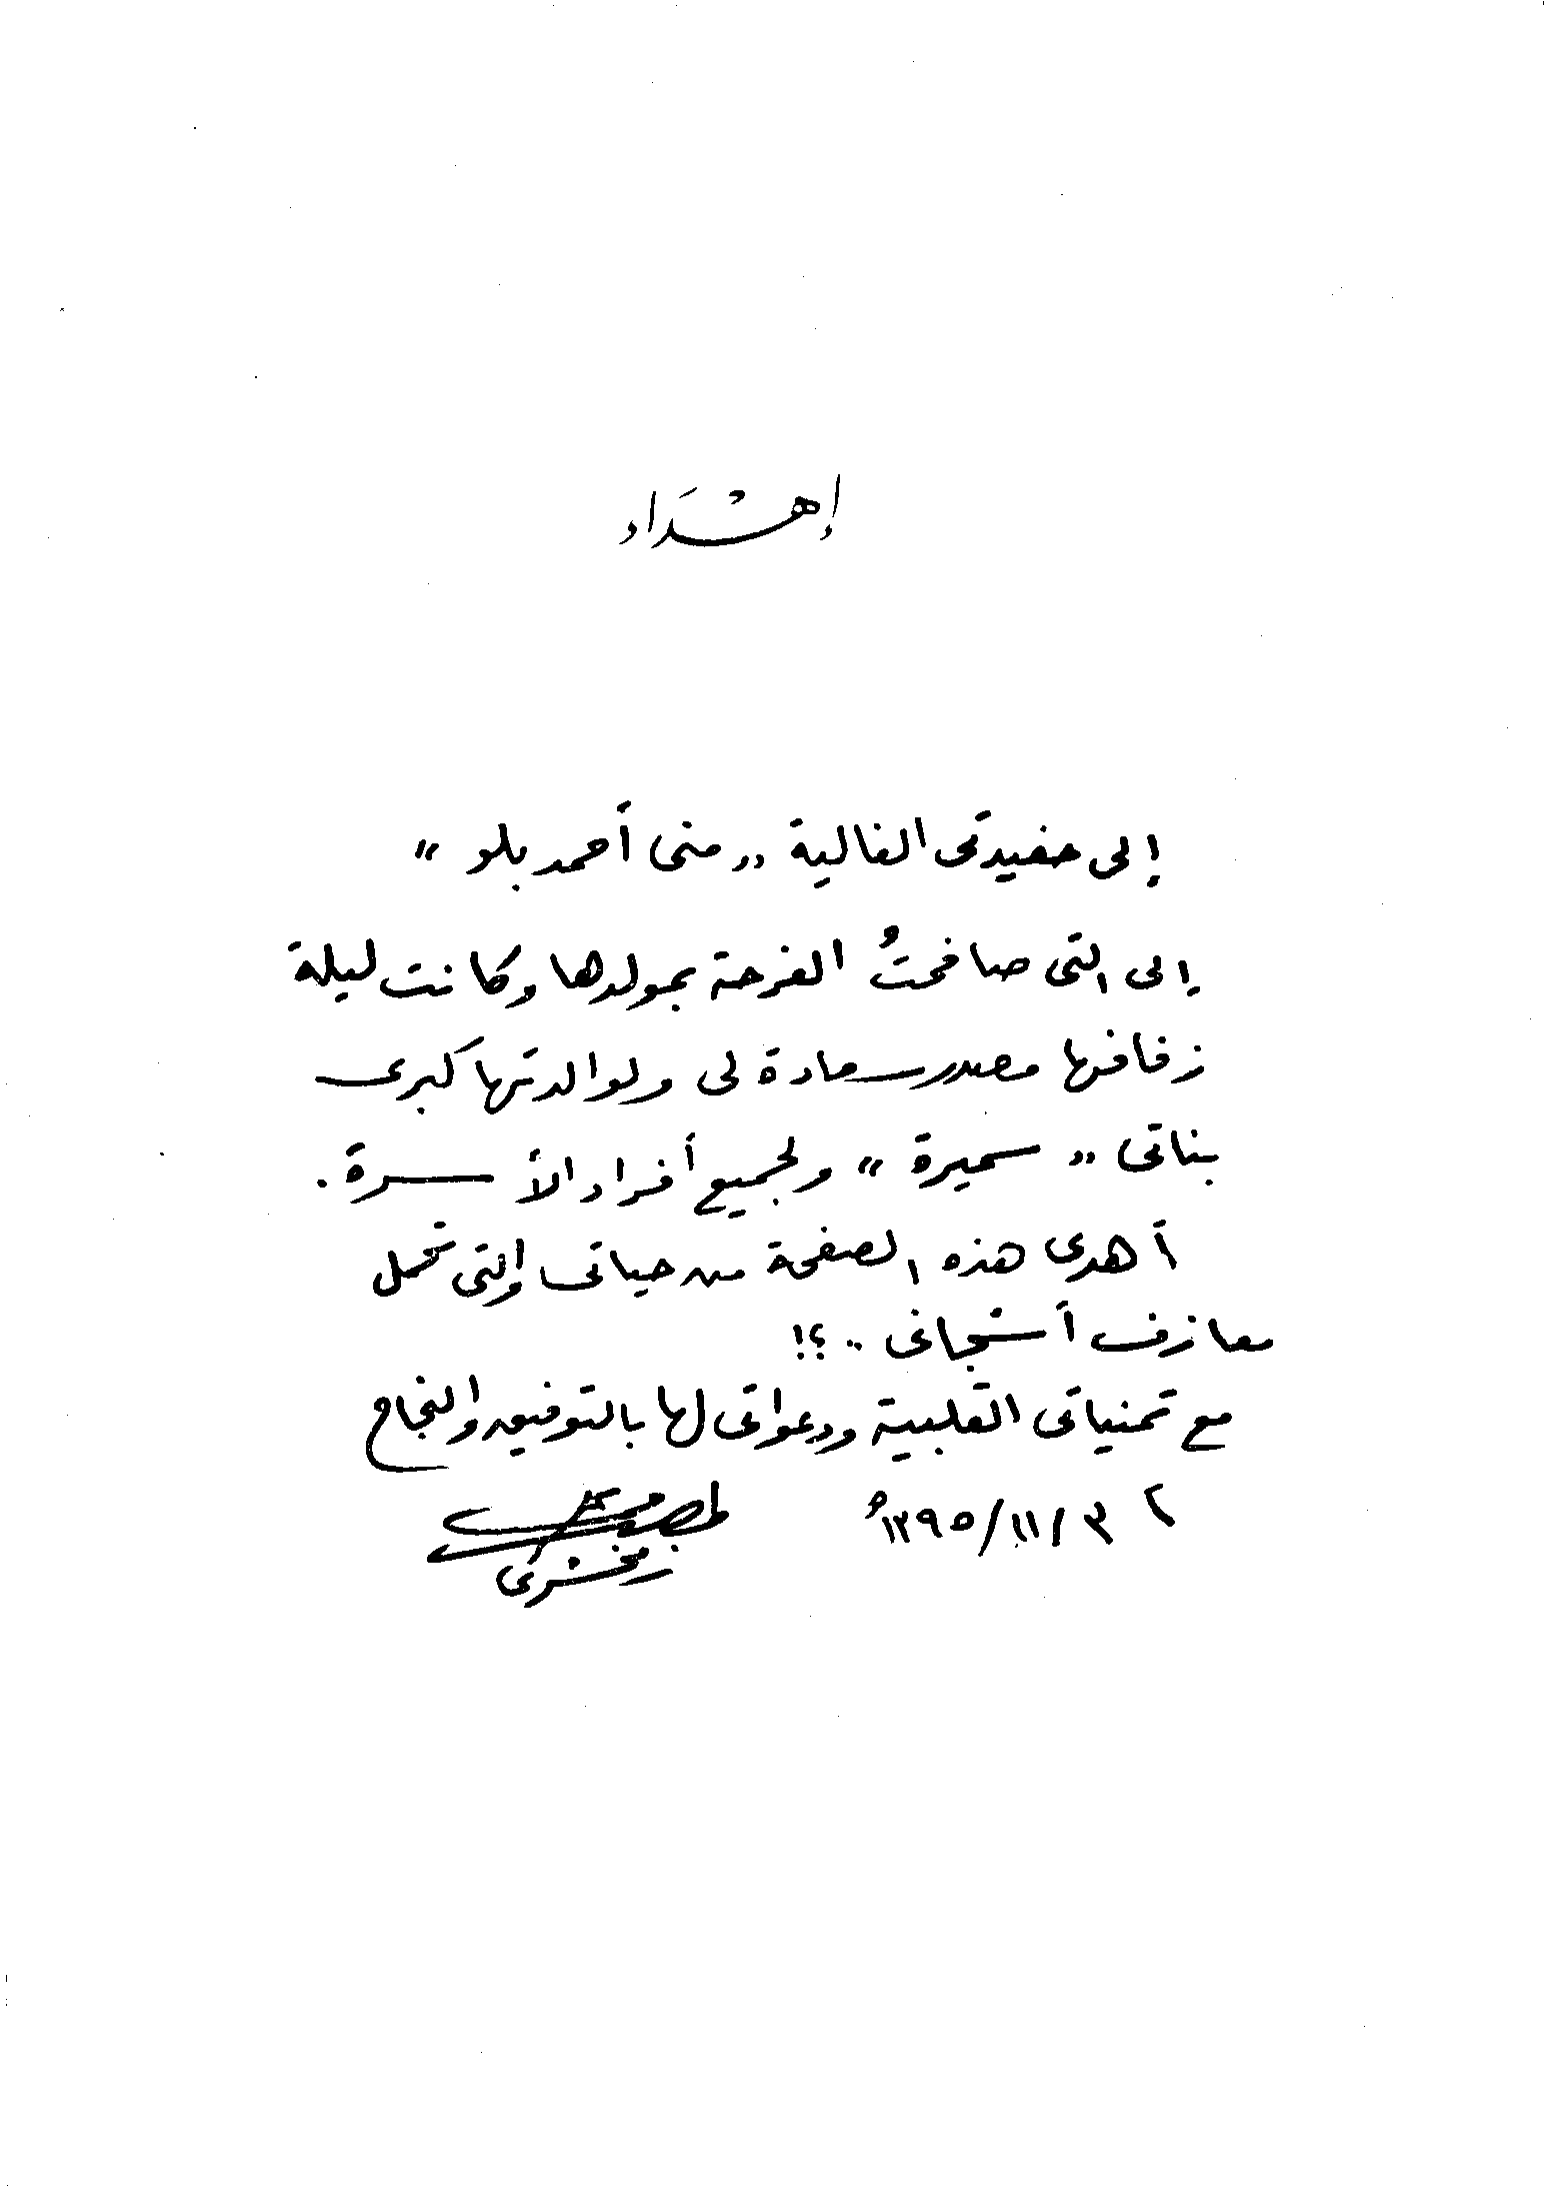 إهْدَاء
إلى حفيدتى الغالية "منى أحمد بلو"
إلى التى صافحتُ الفرحة بمولدها وكانت ليلة
زفافها مصدر سعادة لى ولوالدتها كبرى
بناتى "سميرة" ولجميع أفراد الأسرة.
أهدى هذه الصفحة من حياتى والتى تحمل
معازف أشجانى .. ؟!
مع تمنياتى القلبية ودعواتى لها بالتوفيق والنجاح
٣ /١١/ ١٣٩٥ه
زمخشرى